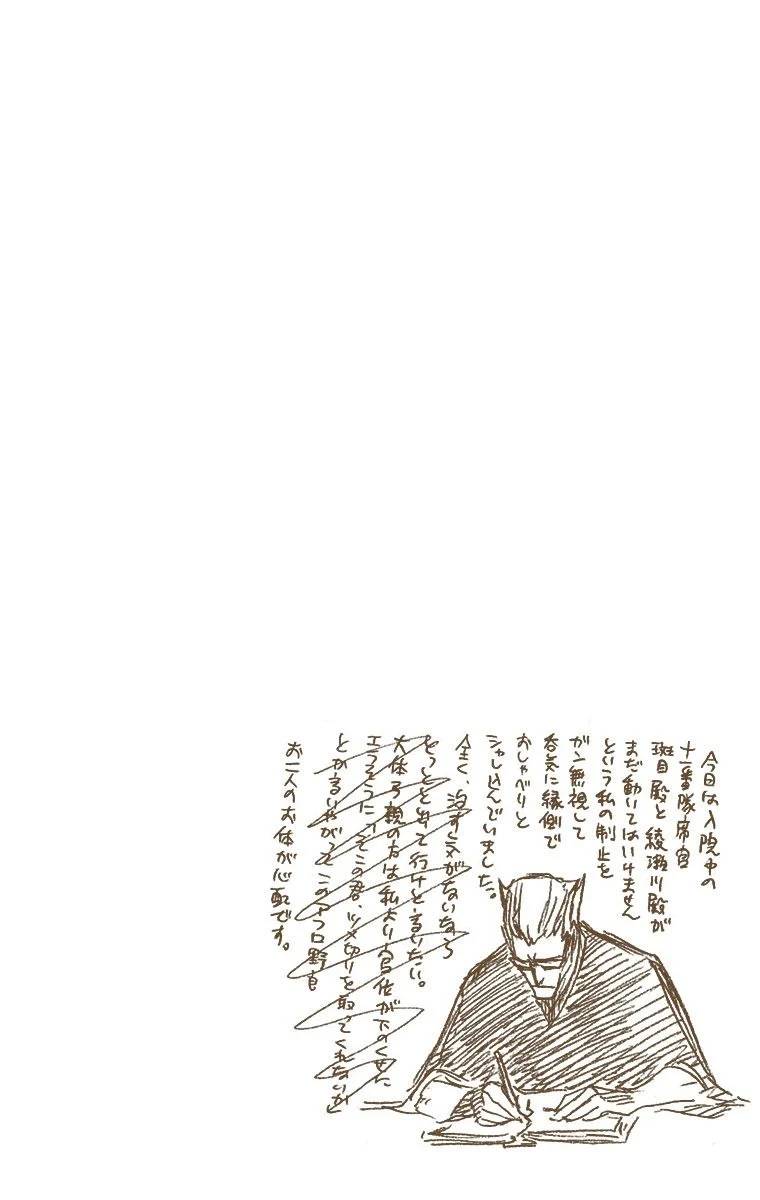 今日は入院中の
十一番隊席官
斑目殿と綾瀬川殿が
まだ動いてはいけません
という私の制止を
ガン無視して
呑気に縁側で
おしゃべりと
シャレ込んでいました。
全く、治す気がないなら
とっとと出て行けと言いたい。
大体弓親の方は私より官位が下のくせに
エラそうに「そこの君、ツメ切りを取ってくれないか」
とか言いやがってこの野良
お二人のお体が心配です。